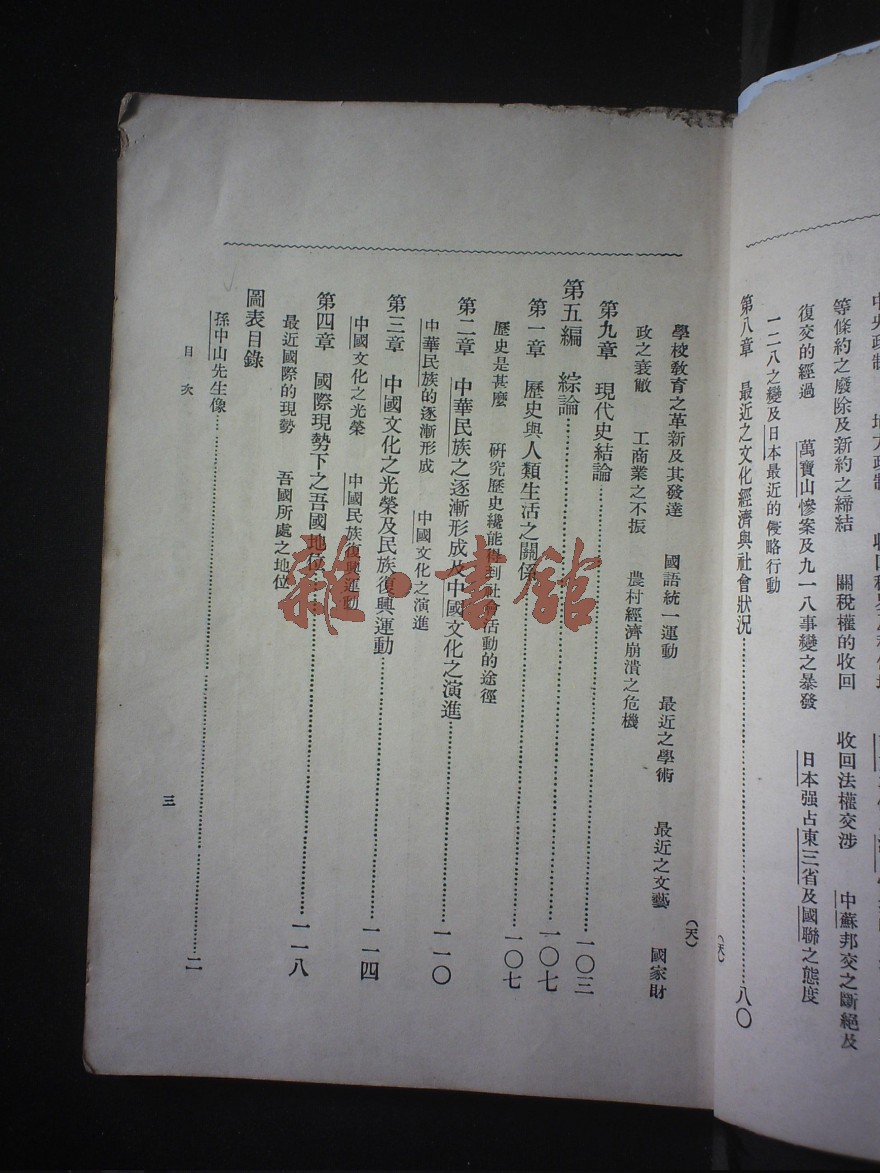 等條約之廢除及新約之締結 關稅權的收回 收回法權交涉 中蘇邦交之斷絕及
復交的經過 萬寶山慘案及九一八事變之暴發 日本强占東三省及國聯之態度
一二八之變及日本最近的侵略行動
第八章 最近之文化經濟與社會狀況 八〇
學校教育之革新及其發達 國語統一運動 最近之學術 最近之文藝 國家財
政之衰敝 工商業之不振 農村經濟崩潰之危機
第九章 現代史結論 一〇三
第五編 綜論 一〇七
第一章 歷史與人類生活之關係 一〇七
歷史是甚麼 研究歷史纔能得到社會活動的途徑
第二章 中華民族之逐漸形成及中國文化之演進 一一〇
中華民族的逐漸形成 中國文化之演進
第三章 中國文化之光榮及民族復興運動 一一四
中國文化之光榮 中國民族復興運動
第四章 國際現勢下之吾國地位 一一八
最近國際的現勢 吾國所處之地位
圖表目錄
孫中山先生像 二
目次
三
(天)
雜·書館